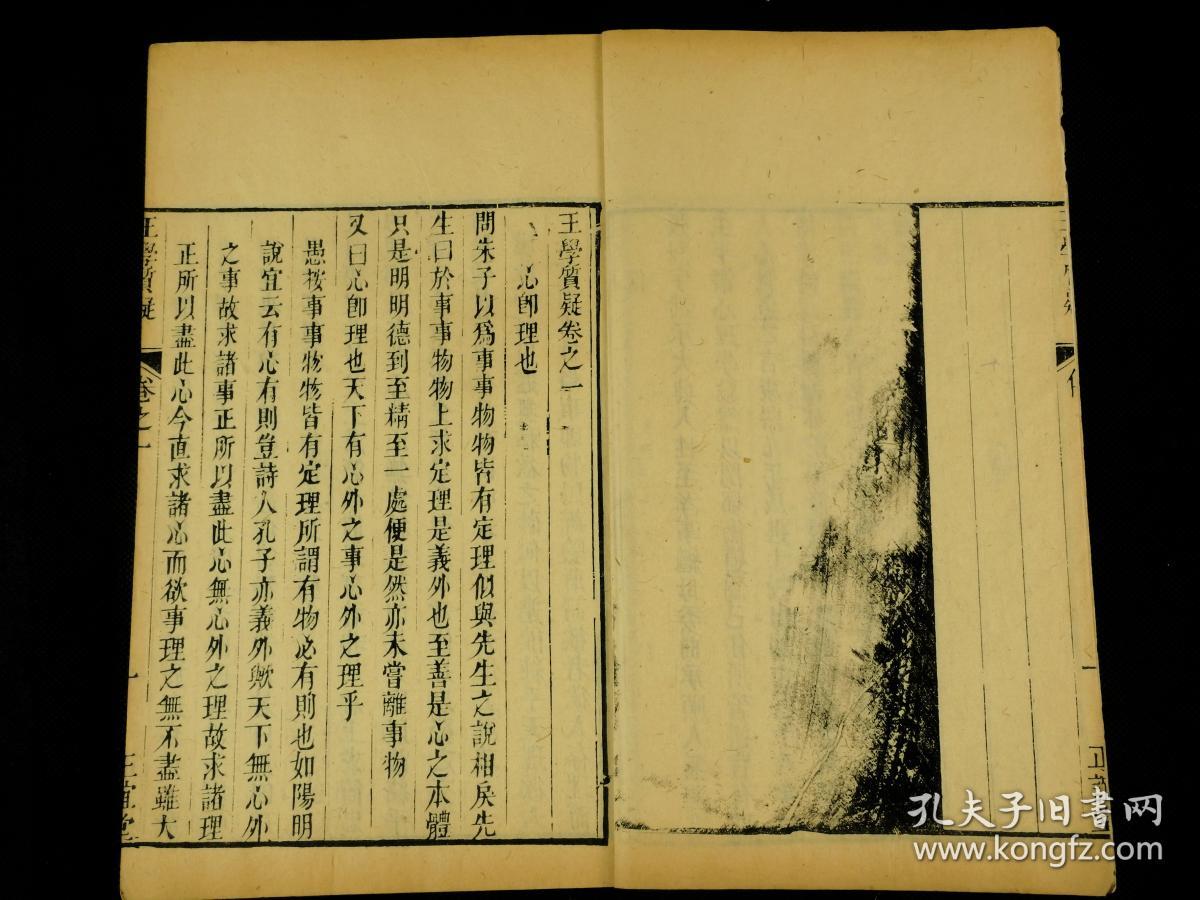 王學質疑卷之一
心即理也
問朱子以爲事事物物皆有定理似與先生之說相戾先
生曰於事事物物上求定理是義外也至善是心之本體
只是明明德到至精至一處便是然亦未嘗離事物
又曰心卽理也天下有心外之事心外之理乎
愚按事事物物皆有定理所謂有物必有則也如陽明
說宜云有心有則豈詩人孔子亦義外歟天下無心外
之事故求諸事正所以盡此心無心外之理故求諸理
正所以盡此心今直求諸心而欲事理之無不盡雖大
王學質疑
卷之一
一
正誼堂
孔夫子旧書网
www.kongfz.com